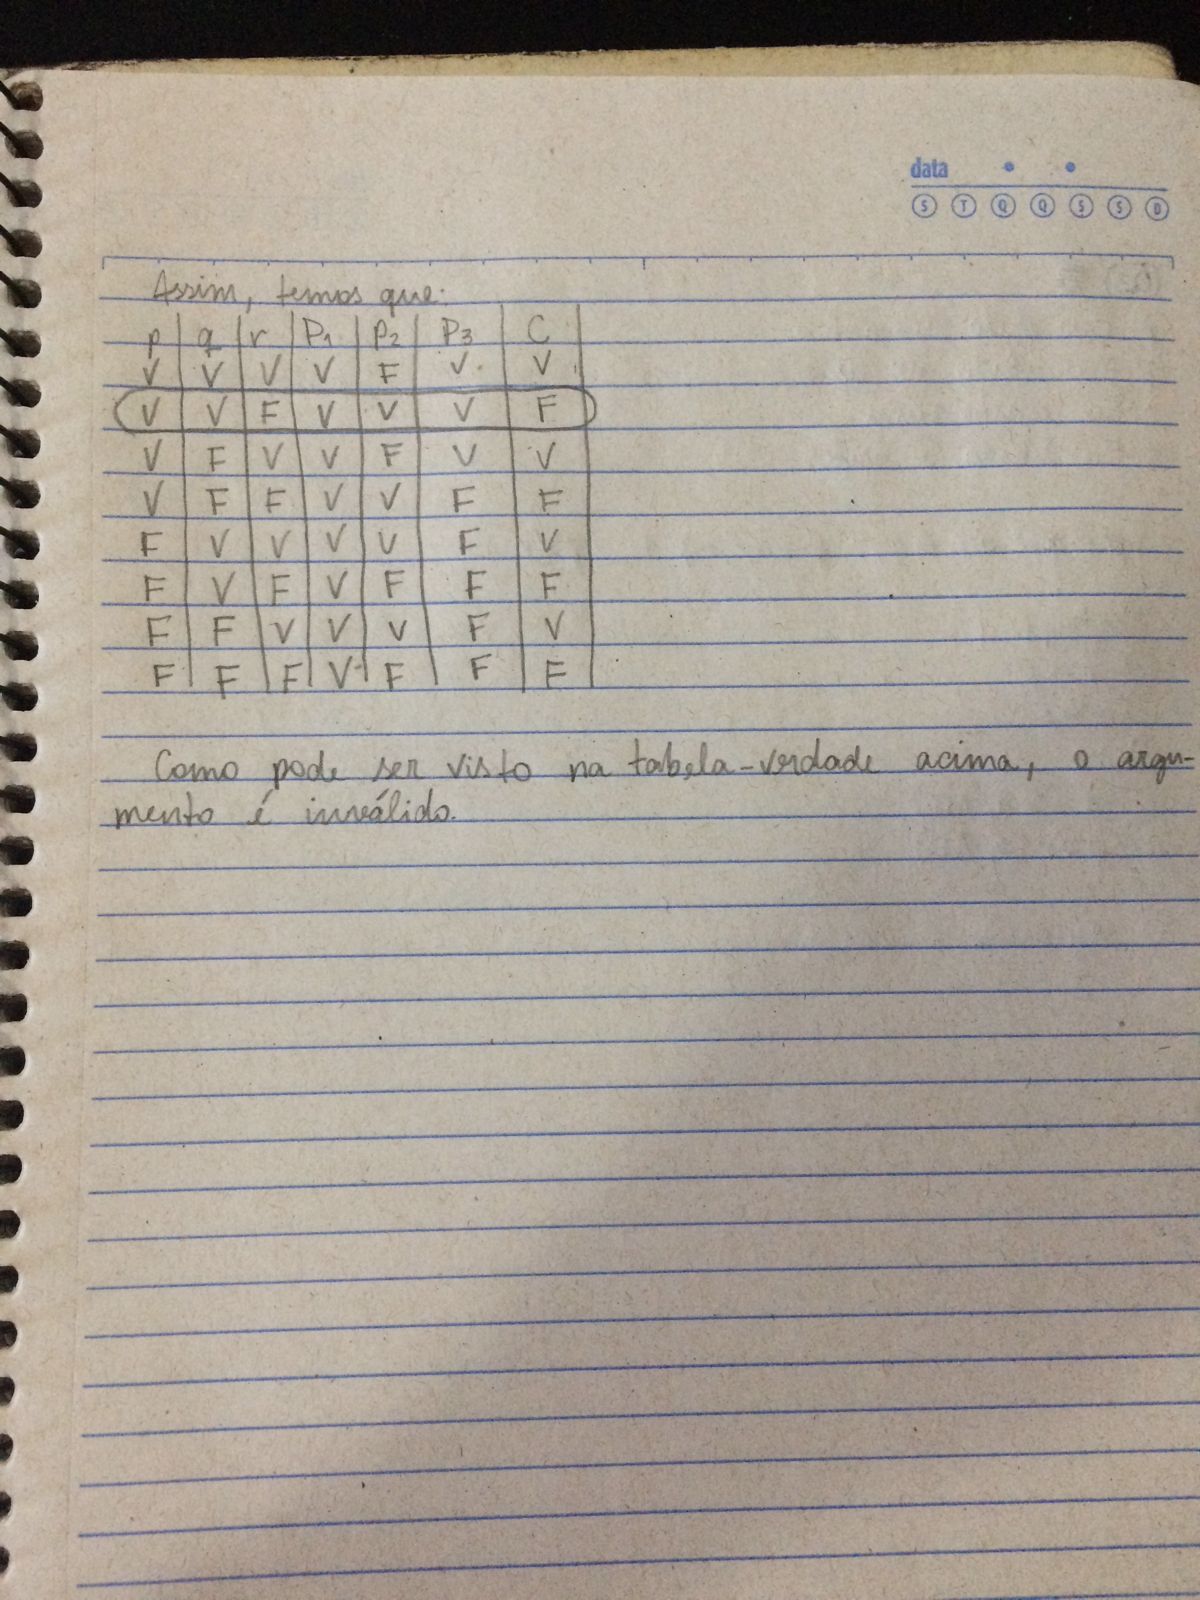 data
S T Q Q S S D
Assim, temos que:
p q r P1 P2 P3 C
V V V V F V V
V V F V V V F
V F V V F V V
V F F V V F F
F V V V V F V
F V F V F F F
F F V V V F V
F F F V F F F
Como pode ser visto na tabela-verdade acima, o argu-
mento é inválido.